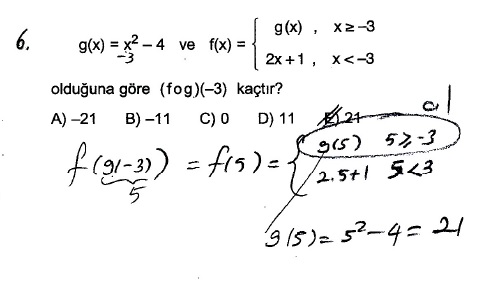 6.
g(x) = x² – 4 ve f(x) = { g(x) , x ≥ –3
2x + 1 , x < –3
–3
olduğuna göre (fog)(–3) kaçtır?
A) –21 B) –11 C) 0 D) 11 E) 21
f(g(-3)) = f(5) = { g(5) 5 ≥ -3
2.5+1 5 < 3
5
g(5) = 5² - 4 = 21